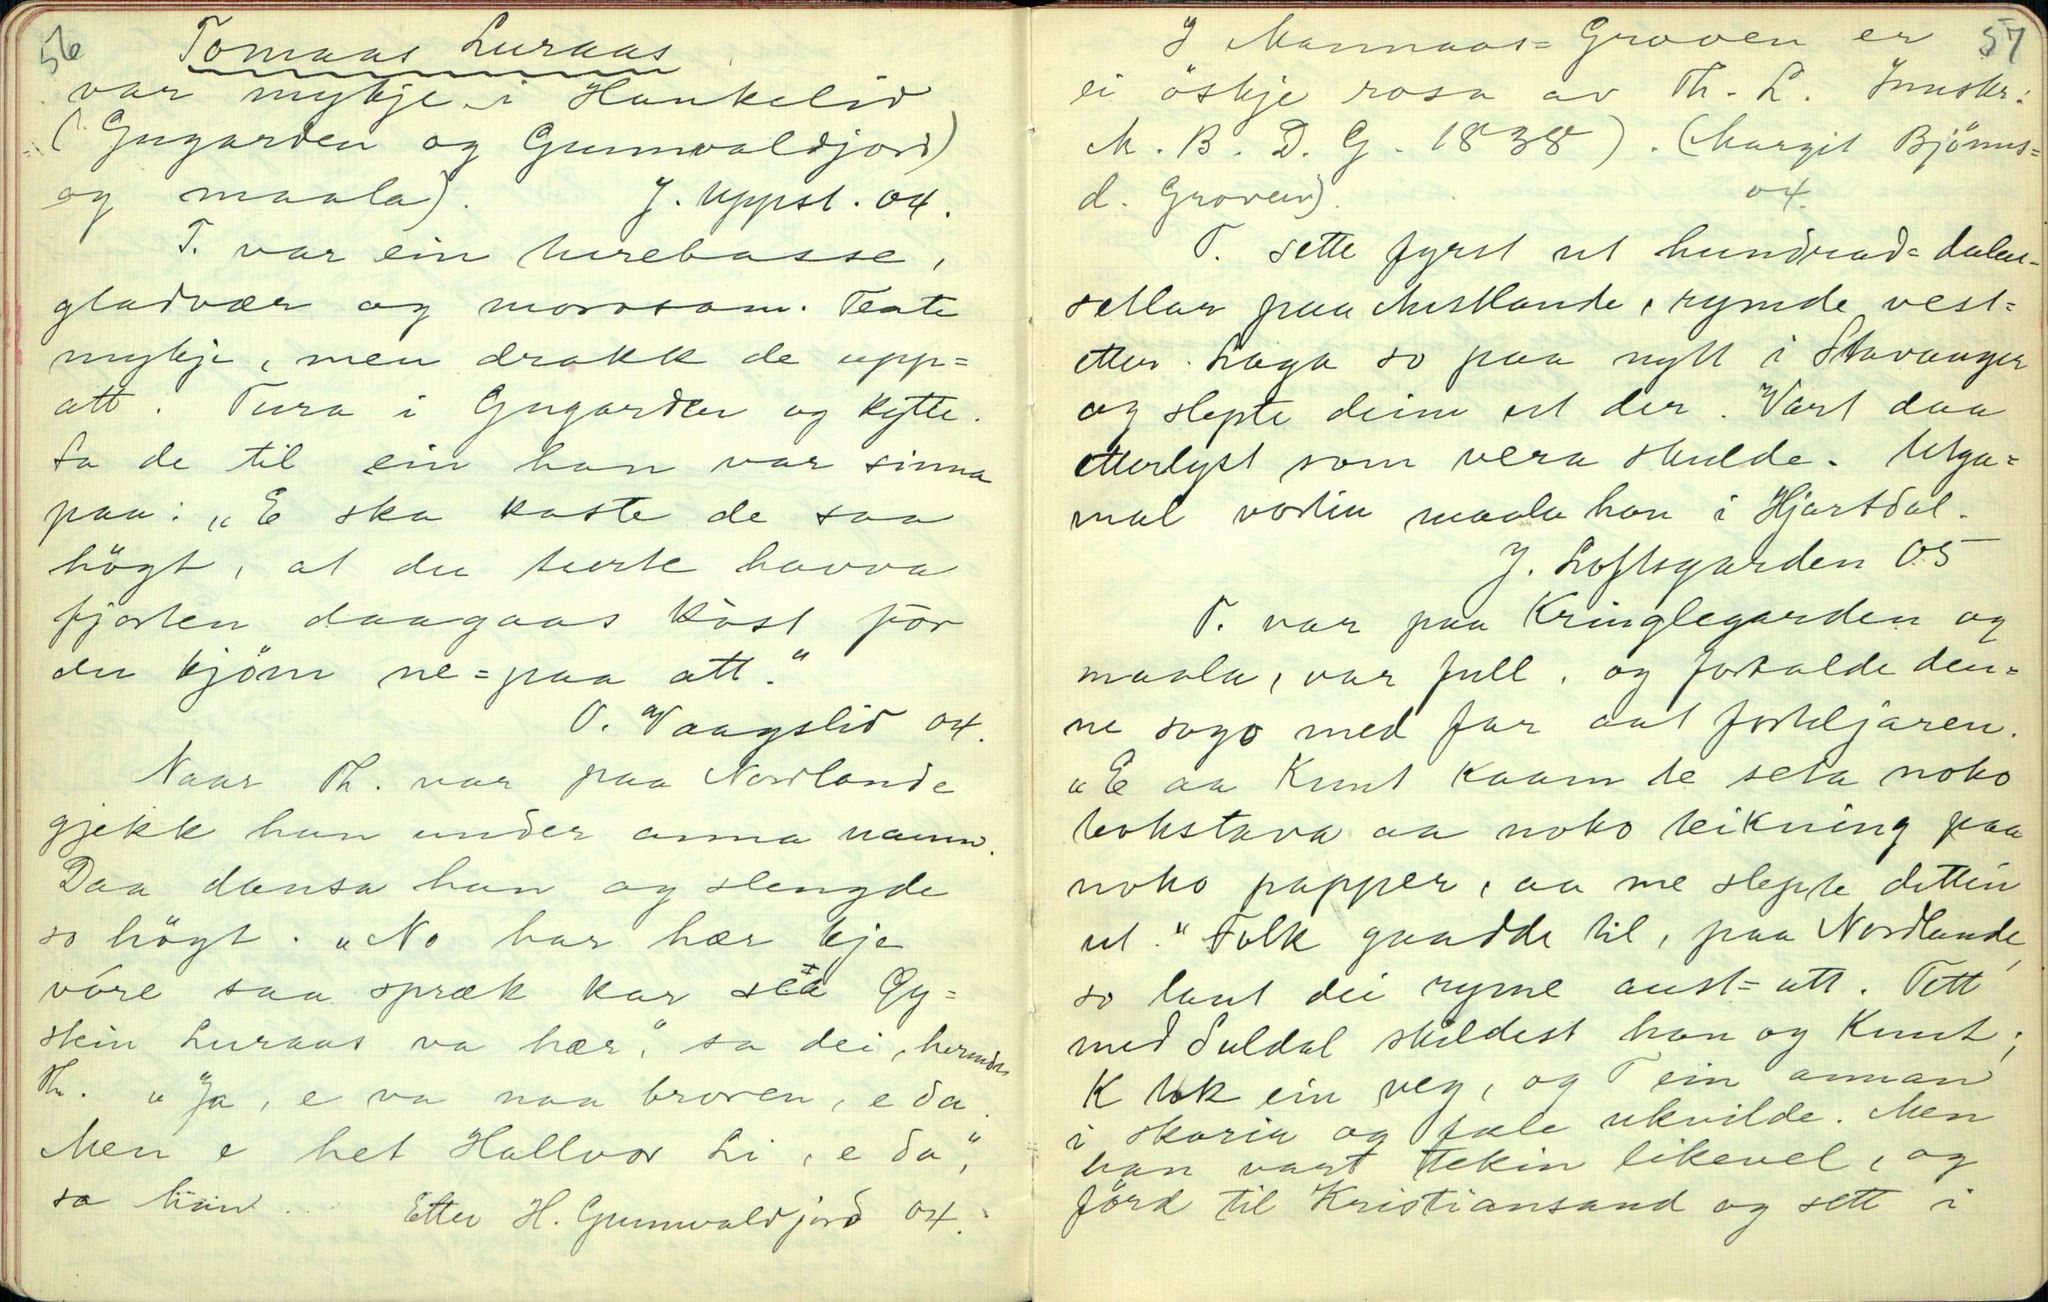 56
Tomaas Luraas
var mykje i Haukelid
(Gugarden og Gunnvaldjord)
og maala). J. Uppst. 04.
T. var ein turebasse,
gladvær og morosam. Tente
mykje, men drakk de upp=
att. Tura i Gugarden og kytte.
Sa de til ein han var sinna
paa: "E ska kaste de saa
högt, at du turte havva
fjorten daagaas kòst för
du kjöm ne=paa att."
O. Vaagslid 04.
Naar Th. var paa Nordlande
gjekk han under anna namn.
Daa dansa han og slengde
so högt. "No har hær kje
vóre saa spræk kar sea Øy=
stein Luraas va hær," sa dei, hermdes
Th. "Ja, e va naa broren, e da.
Men e het Hallvor Li, e da,"
sa han. Etter H. Gunnvaldjord 04.
57
I Mannaas=Groven er
ei öskje rosa av Th. L. Innskr:
M. B. D. G. 1838). (Margit Björns=
d. Groven). 04.
T. sette fyrst ut hundrad=dalar=
setlar paa Austlande, rymde vest=
etter. Laga so paa nytt i Stavanger
og slepte deim ut der. Vart daa
etterlyst som vera skulde. Utga=
mal vortin maala han i Hjartdal.
J. Loftsgarden 05
T. var paa Kringlegarden og
maala, var full, og fortalde den=
ne sogo med far aat forteljaren.
"E aa Knut kaam te seta noko
bokstava aa noko teikning paa
noko papper, aa me slepte dettin
ut." Folk gaadde til, paa Nordlande,
so laut dei ryme aust=att. Tett
med Suldal skildest han og Knut;
K tok ein veg, og T ein annan
i skorin og fæle ukvilde. Men
han vart tekin likevel, og
förd til Kristiansand og sett i